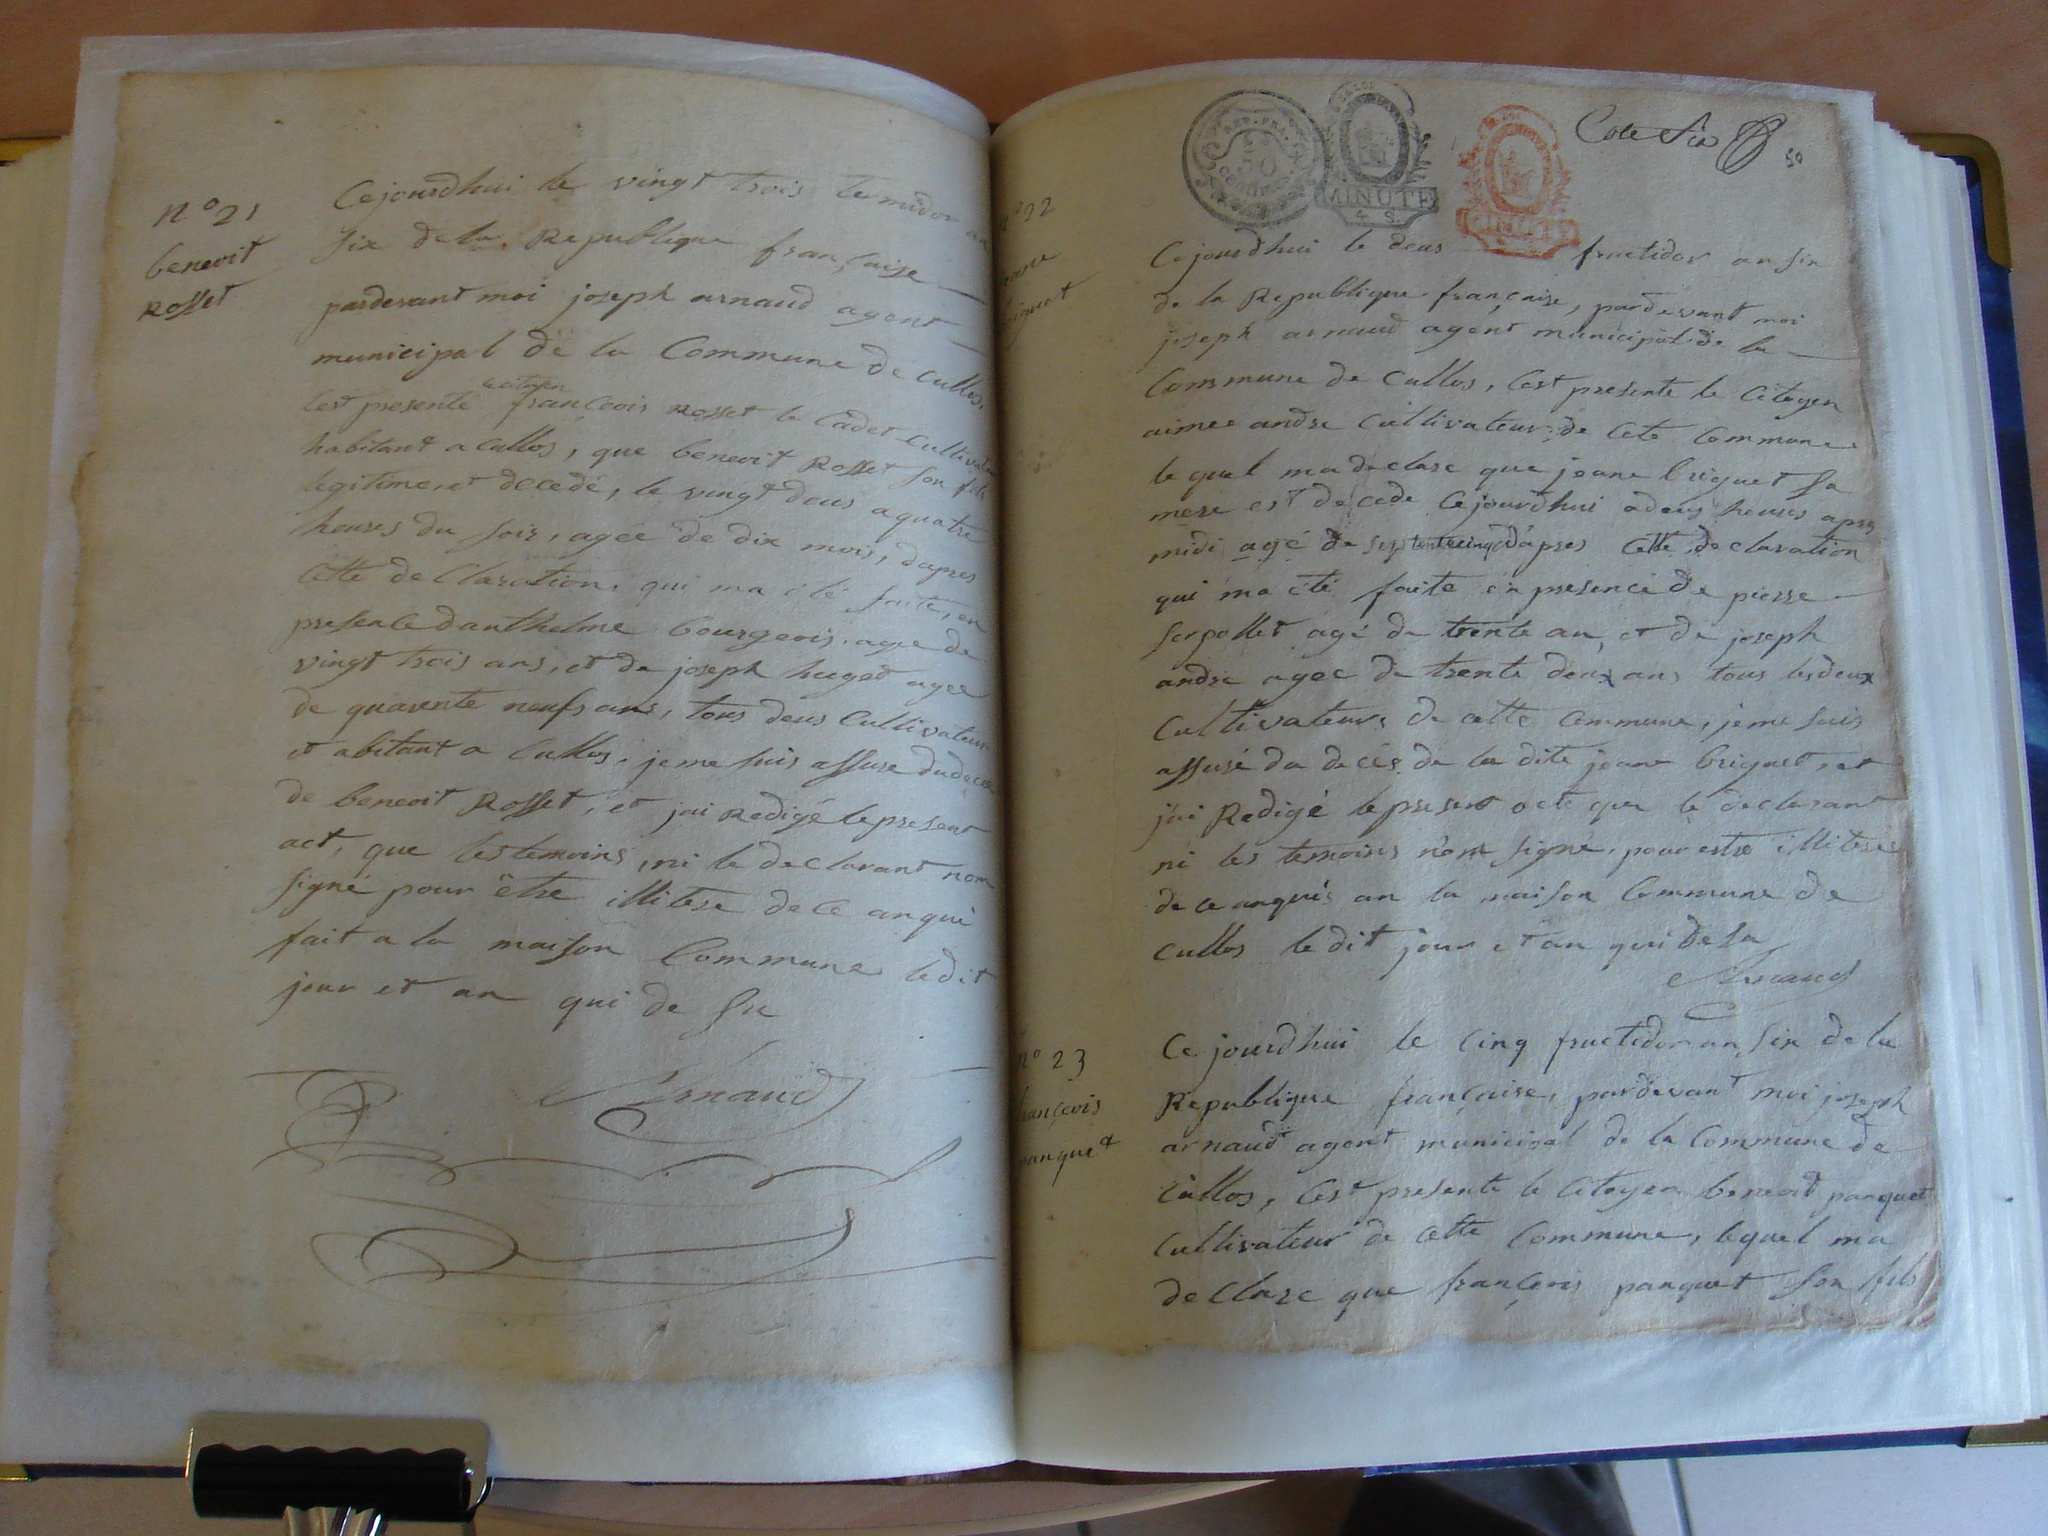 n° 21
benevit
Rosset
Cejourdhui le vingt trois termidor an
six de la Republique française
pardevant moi joseph arnaud agent
municipal de la Commune de cullos,
cest presenté le citoyen françois Rosset le Cadet Cultivateur
habitant a cullos, que benevit Rosset son fils
legitime, et decedé, le vingt deus a quatre
heures du soir, agée de dix mois, dapres
cette declaration, qui ma été faite, en
presence danthelme bourgeois, agee de
vingt trois ans, et de joseph hugod agee
de quarente neufs ans, tous deus Cultivateur
et abitant a Cullos, je me suis assure du deces
de benevit Rosset, et jai Redigé le present
act, que les temoins, ni le declarant nom
signé pour être illitere de ce anquis
fait a la maison Commune ledit
jour et an qui de su
Arnaud
Cote Six
50
REP. FRA.
50
centimes
MINUTE
4 S.
MINUTE
n° 22
jeanne
briguet
Cejourdhui le deus fructidor an six
de la Republique française, pardevant moi
joseph arnaud agent municipal de la
Commune de Cullos, cest presente le Citoyen
aimee andre Cultivateur de cete Commune
le quel ma declare que jeane briguet sa
mere est decede Cejourdhui a deus heures apres
midi agé de septentecinq dápres cette declaration
qui ma été faite én presence de pierre
serpollet agé de trente an, et de joseph
andre agee de trente deux ans tous les deux
Cultivateurs de cette Commune, je me suis
assuré du decés de la dite jeane briguet, et
j'ai Redigé le present acte que le declarant
ni les temoins n'ont signé, pour estre illiteres
de ce anquis an la maison Commune de
cullos le dit jour et an qui de su
Arnaud
n° 23
françois
panquet
Ce jourdhui le cinq fructidor an six de la
Republique française, pardevant moi joseph
arnaud agent municipal de la Commune de
Cullos, cest presente le Citoyen benevit panquet
Cultivateur de cette Commune, lequel ma
declare que françois panquet son fils